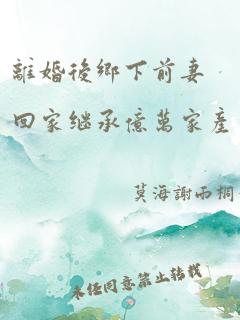 離婚後鄉下前妻
回家继承億萬家產
莫海謝雨桐
未经同意禁止转载